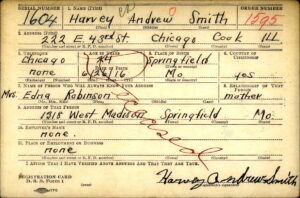 SERIAL NUMBER 1. NAME (Print) ORDER NUMBER
1604 Harvey Andrew Smith 1595
2. ADDRESS (Print)
222 E 43rd St Chicago Cook Ill
3. TELEPHONE 4. AGE IN YEARS 5. PLACE OF BIRTH 6. COUNTRY OF CITIZENSHIP
Chicago 24 Springfield
none 6/26/16 Mo yes
7. NAME OF PERSON WHO WILL ALWAYS KNOW YOUR ADDRESS 8. RELATIONSHIP OF THAT PERSON
Mrs. Edna Robinson mother
9. ADDRESS OF THAT PERSON
1315 West Madison Springfield Mo.
10. EMPLOYER'S NAME
none
11. PLACE OF EMPLOYMENT OR BUSINESS
none
I AFFIRM THAT I HAVE VERIFIED ABOVE ANSWERS AND THAT THEY ARE TRUE.
REGISTRATION CARD
D. S. S. FORM 1
Harvey Andrew Smith